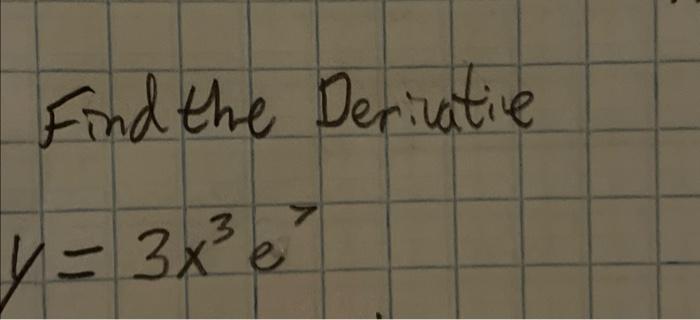 Find the Derivative
y = 3x³ e⁷